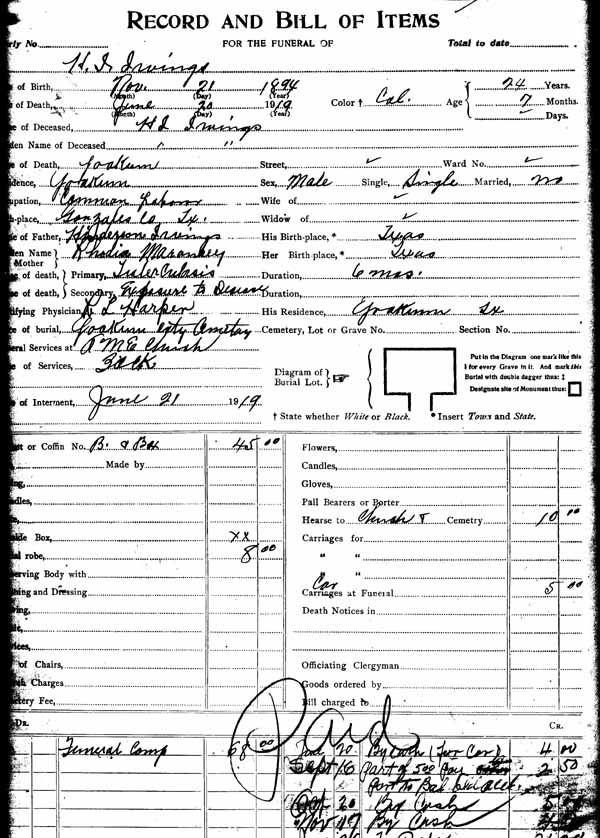 RECORD AND BILL OF ITEMS
rly No. FOR THE FUNERAL OF Total to date
H. I. Irvings
of Birth, Nov. 21 1894 24 Years.
(Month) (Day) (Year)
of Death, June 20 1919 Color † Col. Age 7 Months.
(Month) (Day) (Year) Days.
e of Deceased, H I Irvings
den Name of Deceased " "
of Death, Yoakum Street, Ward No.
dence, Yoakum Sex, Male Single, Single Married, no
upation, Common Labor Wife of
-place, Gonzales Co, Tx. Widow of
e of Father, Henderson Irvings His Birth-place, * Texas
en Name Mother Rhodia Her Birth-place, * Texas
e of death, Primary, Tuberculosis Duration, 6 mos.
e of death, Secondary, Exposure to Disease Duration,
ifying Physician, L Harper His Residence, Yoakum Tx
ce of burial, Yoakum City Cemetay Cemetery, Lot or Grave No. Section No.
eral Services at A M E Church
e of Services,
Diagram of Burial Lot.
Put in the Diagram one mark like this I for every Grave in it. And mark this Burial with double dagger thus: ‡
Designate site of Monument thus:
e of Interment, June 21 1919. † State whether White or Black. * Insert Town and State.
t or Coffin No. B. & Box 45 00 Flowers,
Made by Candles,
ng, Gloves,
dles, Pall Bearers or Porter
Hearse to Church & Cemetry 10 00
ide Box, xx Carriages for
l robe, 8 00 " "
erving Body with Car
hing and Dressing Carriages at Funeral 5 00
ving, Death Notices in
ices,
of Chairs, Officiating Clergyman
h Charges Goods ordered by
etery Fee, Bill charged to
DR. Paid CR.
Funeral Comp 68 00 20 By Cash (For Car) 4 00
Sept 16 part of 500 pay 2 50
part to Bal
Oct 20 By Cash
Nov 19 By Cash